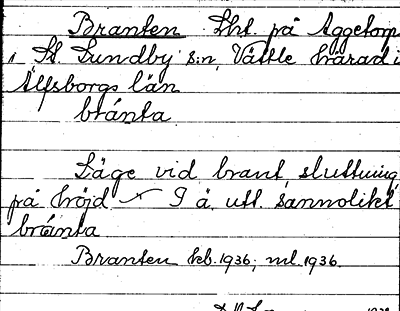 Branten Lht. på Aggetorp
i St. Lundby s:n, Vättle härad i
Älfsborgs län
bránta
Läge vid brant sluttning
på höjd. I ä. utt. sannolikt
bránta
Branten kb. 1936; ml. 1936.